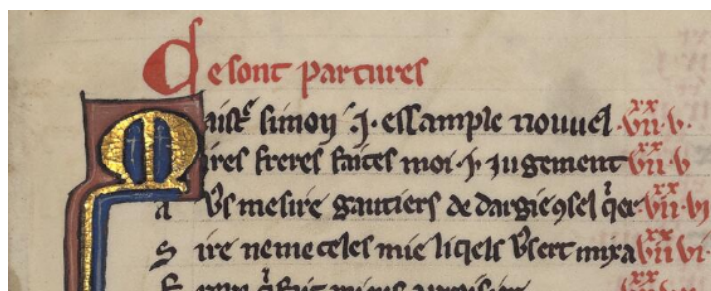 Ce sont partures
Maistᵉ simon ·j· essample nouuel ·viiˣˣ·v·
ires freres faites moi ·j· jugement viiˣˣ·v
a Vs mesire gautiers de dargie ꝯsel q̃er ·viiˣˣ·vj
S ire ne me celes mie liqels Vs ert mixa viiˣˣ vi·